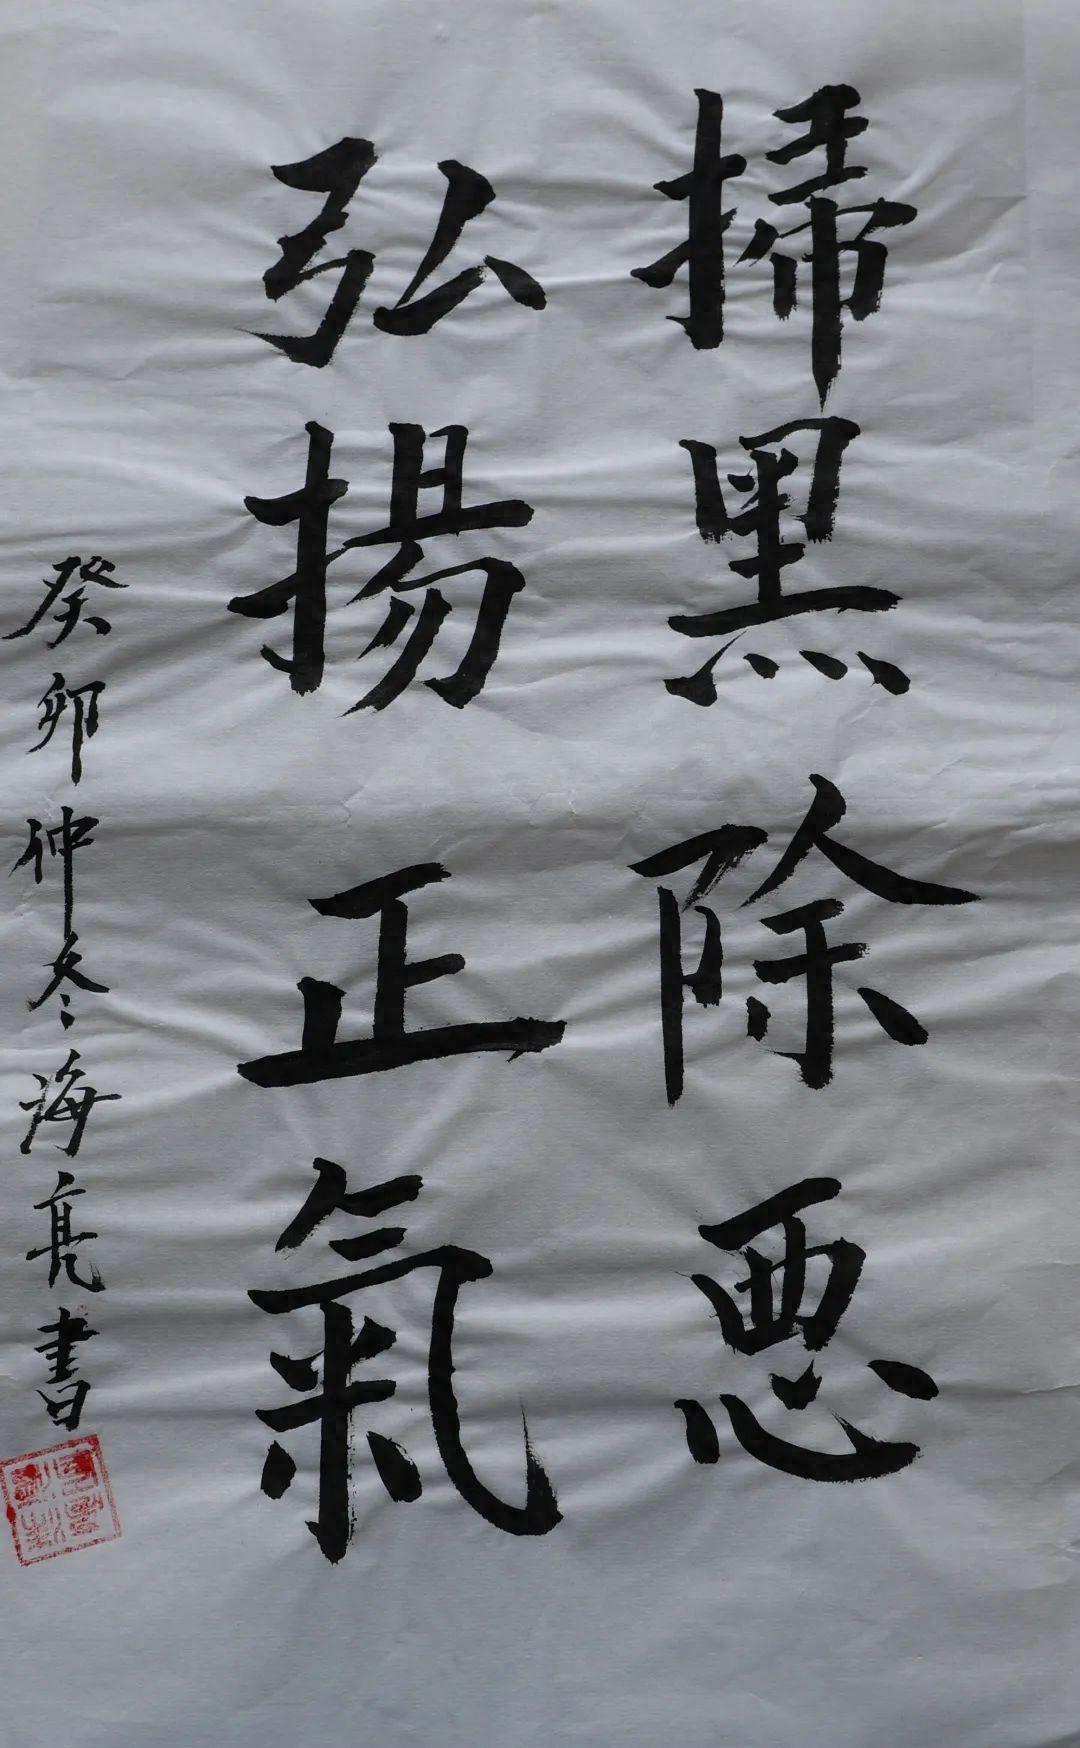 掃黑除悪
弘揚正氣
癸卯仲冬海亮書